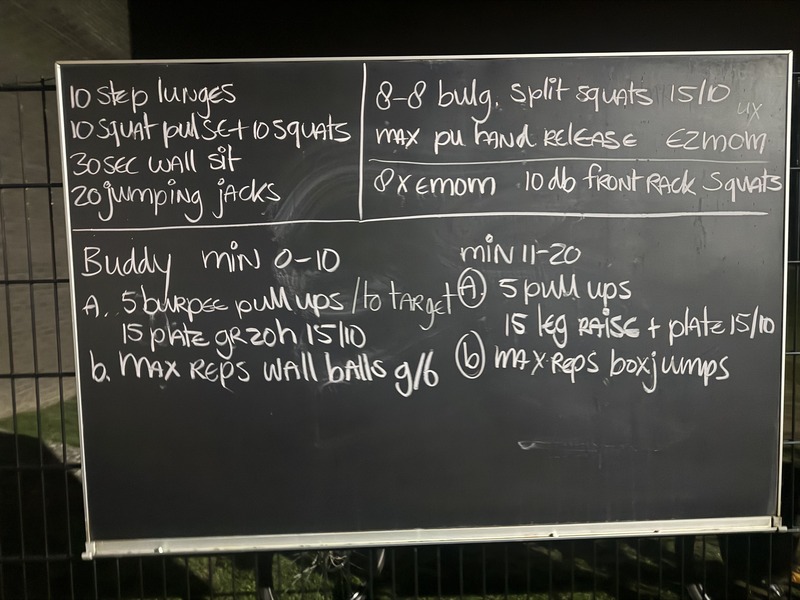 10 step lunges
10 squat pulse + 10 squats
30 sec wall sit
20 jumping jacks
8-8 bulg. split squats 15/10 4x
max pu hand release E2mom
8x emom 10 db front rack squats
Buddy min 0-10
A. 5 burpee pull ups / to target
15 plate gr2oh 15/10
b. max reps wall balls 9/6
min 11-20
A 5 pull ups
15 leg raise + plate 15/10
b max reps box jumps